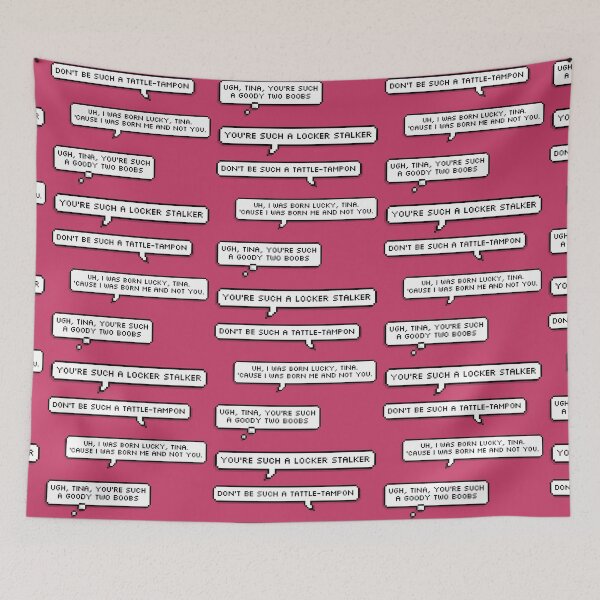 DON'T BE SUCH A TATTLE-TAMPON
UGH, TINA, YOU'RE SUCH
A GOODY TWO BOOBS
DON'T BE SUCH A TATTLE-TAMPON
UH, I WAS BORN LUCKY, TINA.
'CAUSE I WAS BORN ME AND NOT YOU.
YOU'RE SUCH A LOCKER STALKER
UH, I WAS BORN LUCKY, TINA.
'CAUSE I WAS BORN ME AND NOT YOU.
UGH, TINA, YOU'RE SUCH
A GOODY TWO BOOBS
DON'T BE SUCH A TATTLE-TAMPON
UGH, TINA, YOU'RE SUCH
A GOODY TWO BOOBS
YOU'RE SUCH A LOCKER STALKER
UH, I WAS BORN LUCKY, TINA.
'CAUSE I WAS BORN ME AND NOT YOU.
YOU'RE SUCH A LOCKER STALKER
DON'T BE SUCH A TATTLE-TAMPON
UGH, TINA, YOU'RE SUCH
A GOODY TWO BOOBS
DON'T BE SUCH A TATTLE-TAMPON
UH, I WAS BORN LUCKY, TINA.
'CAUSE I WAS BORN ME AND NOT YOU.
YOU'RE SUCH A LOCKER STALKER
UH, I WAS BORN LUCKY, TINA.
'CAUSE I WAS BORN ME AND NOT YOU.
UGH, TINA, YOU'RE SUCH
A GOODY TWO BOOBS
DON'T BE SUCH A TATTLE-TAMPON
UGH, TINA, YOU'RE SUCH
A GOODY TWO BOOBS
YOU'RE SUCH A LOCKER STALKER
UH, I WAS BORN LUCKY, TINA.
'CAUSE I WAS BORN ME AND NOT YOU.
YOU'RE SUCH A LOCKER STALKER
DON'T BE SUCH A TATTLE-TAMPON
UGH, TINA, YOU'RE SUCH
A GOODY TWO BOOBS
DON'T BE SUCH A TATTLE-TAMPON
UH, I WAS BORN LUCKY, TINA.
'CAUSE I WAS BORN ME AND NOT YOU.
YOU'RE SUCH A LOCKER STALKER
UH, I WAS BORN LUCKY, TINA.
'CAUSE I WAS BORN ME AND NOT YOU.
UGH, TINA, YOU'RE SUCH
A GOODY TWO BOOBS
DON'T BE SUCH A TATTLE-TAMPON
UGH, TINA, YOU'RE SUCH
A GOODY TWO BOOBS